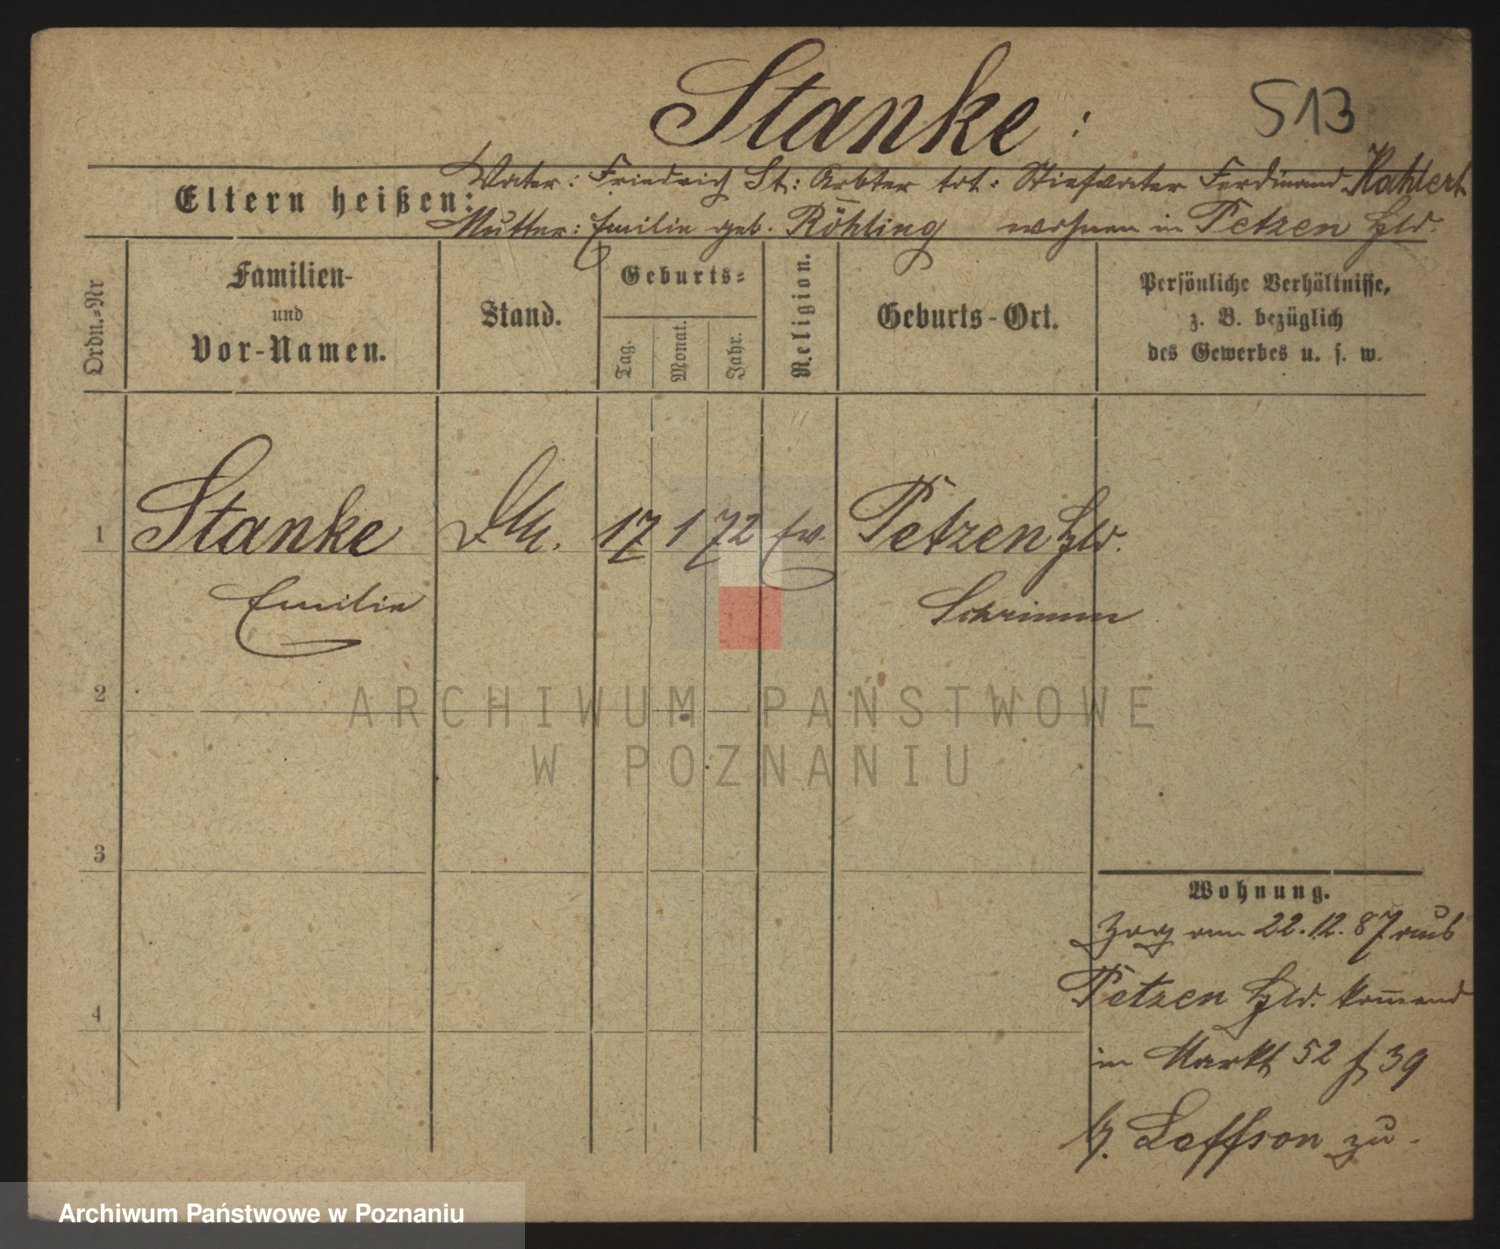 Stanke:
513
Eltern heißen:
Vater: Friedrich St: Arbter tot. Stiefvater Ferdinand Kahlert
Mutter: Emilie geb. Röhling wohnen in Petzen Hld.
Ordn.-Nr
Familien-
und
Vor-Namen.
Stand.
Geburts-
Tag.
Monat.
Jahr.
Religion.
Geburts-Ort.
Persönliche Verhältnisse,
z. B. bezüglich
des Gewerbes u. s. w.
1 Stanke 17 1 72 Ev. Petzen Hld.
Emilie Schrimm
2
ARCHIWUM PAŃSTWOWE
W POZNANIU
3
4
Wohnung.
Zog am 22.12.87 aus
Petzen Hld. kom̅end
in Markt 52 f 39
b. Leffson zu.
Archiwum Państwowe w Poznaniu